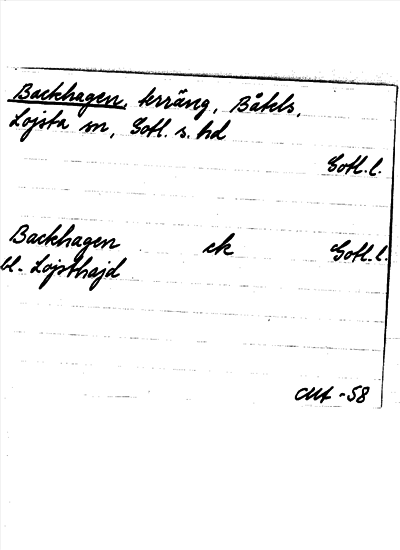 Backhagen, terräng, Båtels,
Lojsta sn, Gotl. s. hd
Gotl. l.
Backhagen ek Gotl. l.
bl. Lojsthajd
-58